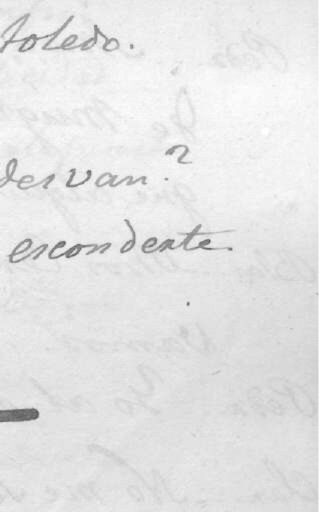 toledo.
desvan?
esconderte.